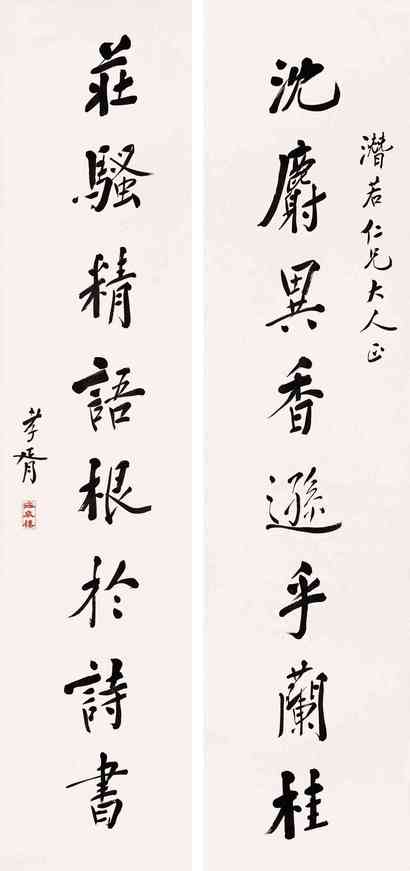 潛若仁兄大人正
沈麝異香遜乎蘭桂
莊騷精語根於詩書
孝胥